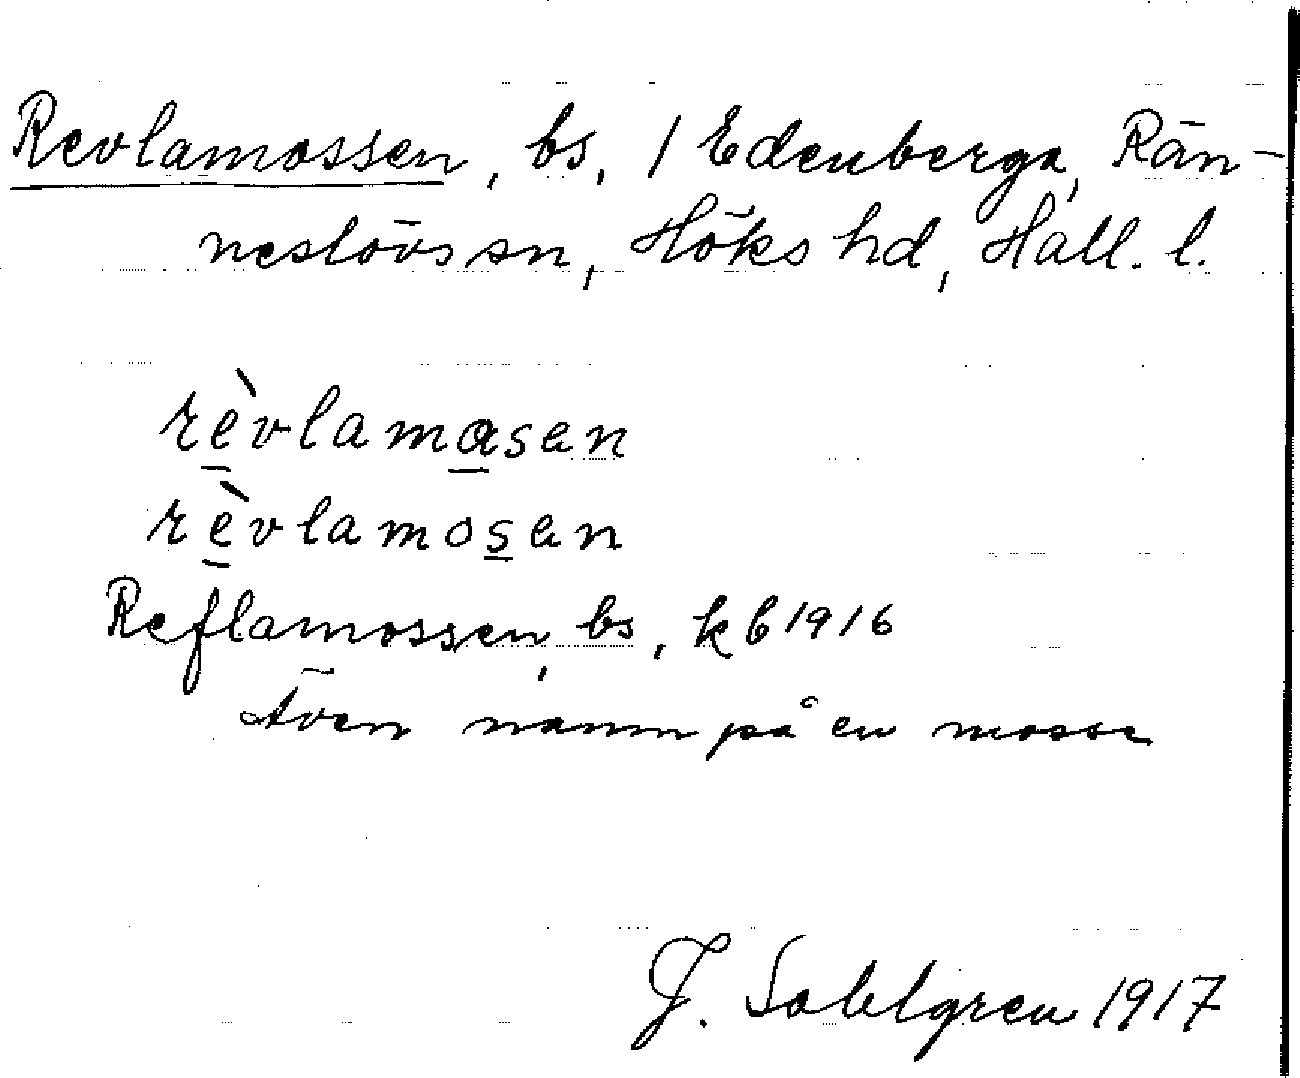 Revlamossen, bs, / Edenberga, Rän-
neslövs sn, Höks hd, Hall. l.
rèvlamasen
rèvlamosen
Reflamossen, bs, kb 1916
Även namn på en mosse
J. Sahlgren 1917